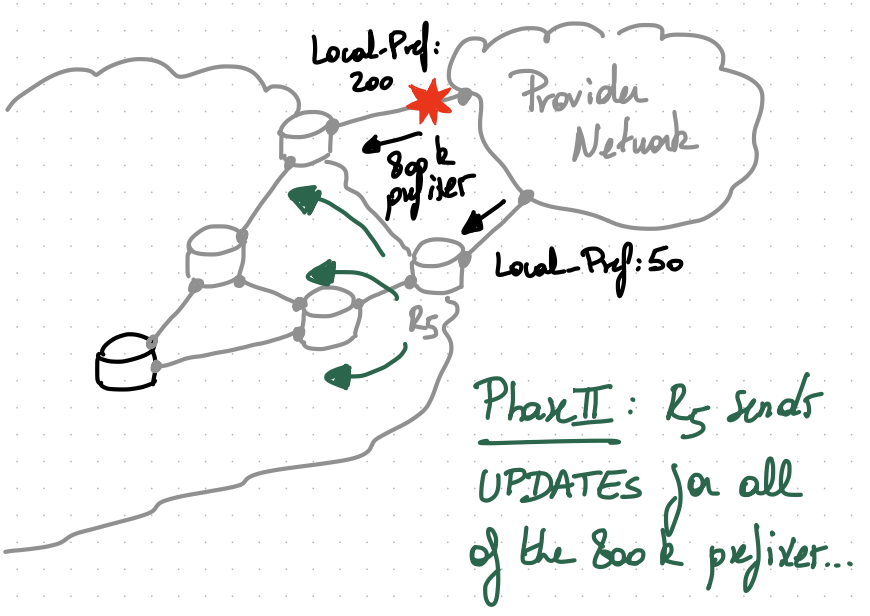 Local-Pref:
200
Provider
Network
800 k
prefixes
Local-Pref: 50
R5
Phase II : R5 sends
UPDATES for all
of the 800 k prefixes...